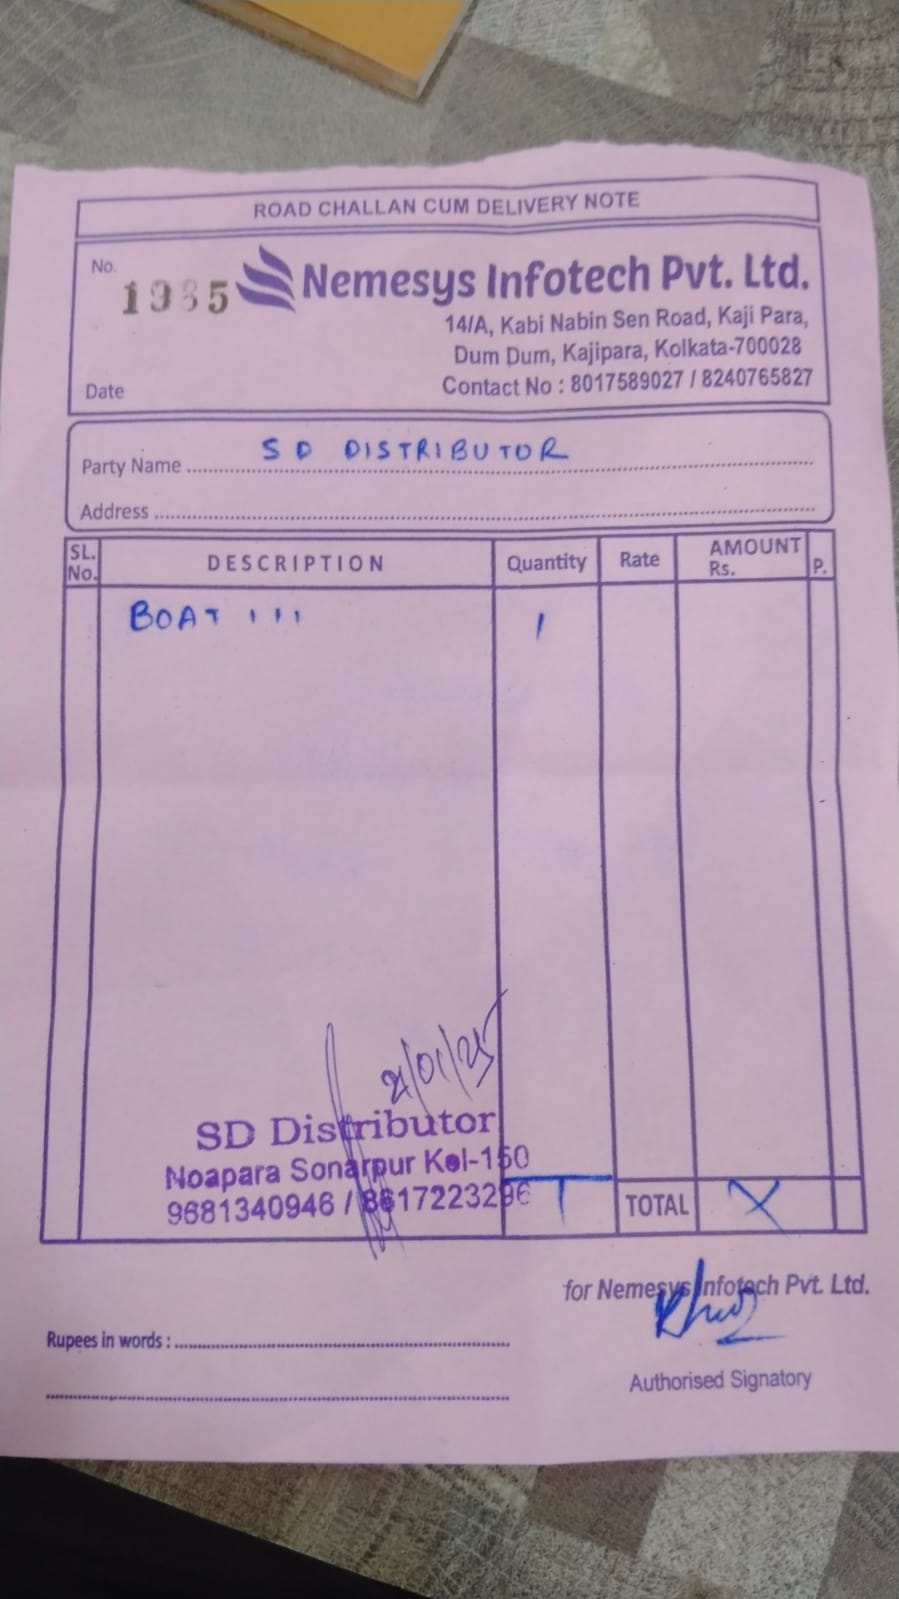 ROAD CHALLAN CUM DELIVERY NOTE
No.
Nemesys Infotech Pvt. Ltd.
14/A, Kabi Nabin Sen Road, Kaji Para,
Dum Dum, Kajipara, Kolkata-700028
Date
Contact No : 8017589027 / 8240765827
Party Name SD DISTRIBUTOR
Address
SL. No. DESCRIPTION Quantity Rate AMOUNT Rs. P.
BOAT 111 1
21/01/25
SD Distributor
Noapara Sonarpur Kol-150
9681340946 /
TOTAL X
for Nemesys Infotech Pvt. Ltd.
Rupees in words :
Authorised Signatory